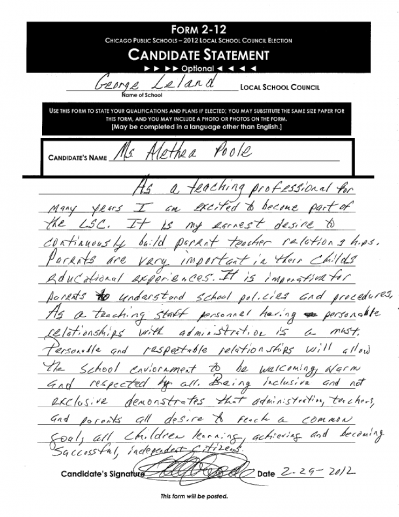 FORM 2-12
CHICAGO PUBLIC SCHOOLS – 2012 LOCAL SCHOOL COUNCIL ELECTION
CANDIDATE STATEMENT
► ► ► ► Optional ◄ ◄ ◄ ◄
George Leland LOCAL SCHOOL COUNCIL
Name of School
USE THIS FORM TO STATE YOUR QUALIFICATIONS AND PLANS IF ELECTED; YOU MAY SUBSTITUTE THE SAME SIZE PAPER FOR
THIS FORM, AND YOU MAY INCLUDE A PHOTO OR PHOTOS ON THE FORM.
[May be completed in a language other than English.]
CANDIDATE'S NAME Ms Alethea Poole
As a teaching professional for
many years I am excited to become part of
the LSC. It is my earnest desire to
continuously build parent teacher relationships.
Parents are very important in their childs
educational experiences. It is imperative for
parents to understand school policies and procedures.
As a teaching staff personnel having personable
relationships with administration is a must.
Personable and respectable relationships will allow
the school enviornment to be welcoming, warm
and respected by all. Being inclusive and not
exclusive demonstrates that administration, teachers,
and parents all desire to reach a common
goal, all children learning, achieving and becoming
successful, independent citizens.
Candidate's Signature Date 2-29-2012
This form will be posted.